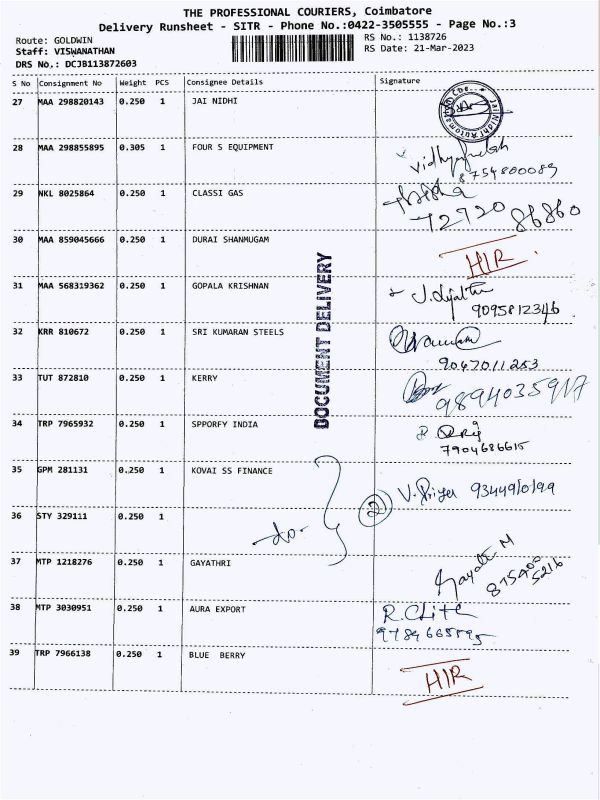 THE PROFESSIONAL COURIERS, Coimbatore
Delivery Runsheet - SITR - Phone No.:0422-3505555 - Page No.:3
Route: GOLDWIN
RS No.: 1138726
Staff: VISWANATHAN
RS Date: 21-Mar-2023
DRS No.: DCJB113872603
S No Consignment No Weight PCS Consignee Details Signature
27 MAA 298820143 0.250 1 JAI NIDHI
28 MAA 298855895 0.305 1 FOUR S EQUIPMENT
8754800089
29 NKL 8025864 0.250 1 CLASSI GAS
72720 86860
30 MAA 859045666 0.250 1 DURAI SHANMUGAM HIR
DOCUMENT DELIVERY
31 MAA 568319362 0.250 1 GOPALA KRISHNAN
9095812346
32 KRR 810672 0.250 1 SRI KUMARAN STEELS
9047011253
33 TUT 872810 0.250 1 KERRY
34 TRP 7965932 0.250 1 SPPORFY INDIA
7904686615
35 GPM 281131 0.250 1 KOVAI SS FINANCE
2 V. Priya
36 STY 329111 0.250 1
-do-
37 MTP 1218276 0.250 1 GAYATHRI
Gayatri M
38 MTP 3030951 0.250 1 AURA EXPORT
39 TRP 7966138 0.250 1 BLUE BERRY
HIR